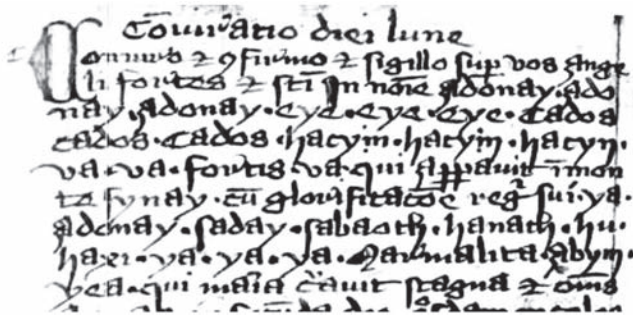 Coniuratio diei lune
Coniuro & 9firmo & sigillo sup vos ange
li fortes & sci In noie adonay. ado
nay. adonay. eye. eye. eye. Cados
cados. Cados. hacym. hacym. hacyn.
va. va. fortis. va. qui apparuit i mon
te synay. cu glorificatoe reg sui. ya.
adonay. saday. sabaoth. hanath. hu.
haxi. ya. ya. ya. Marmalita. abym.
yea. qui maria creauit stagna & oms